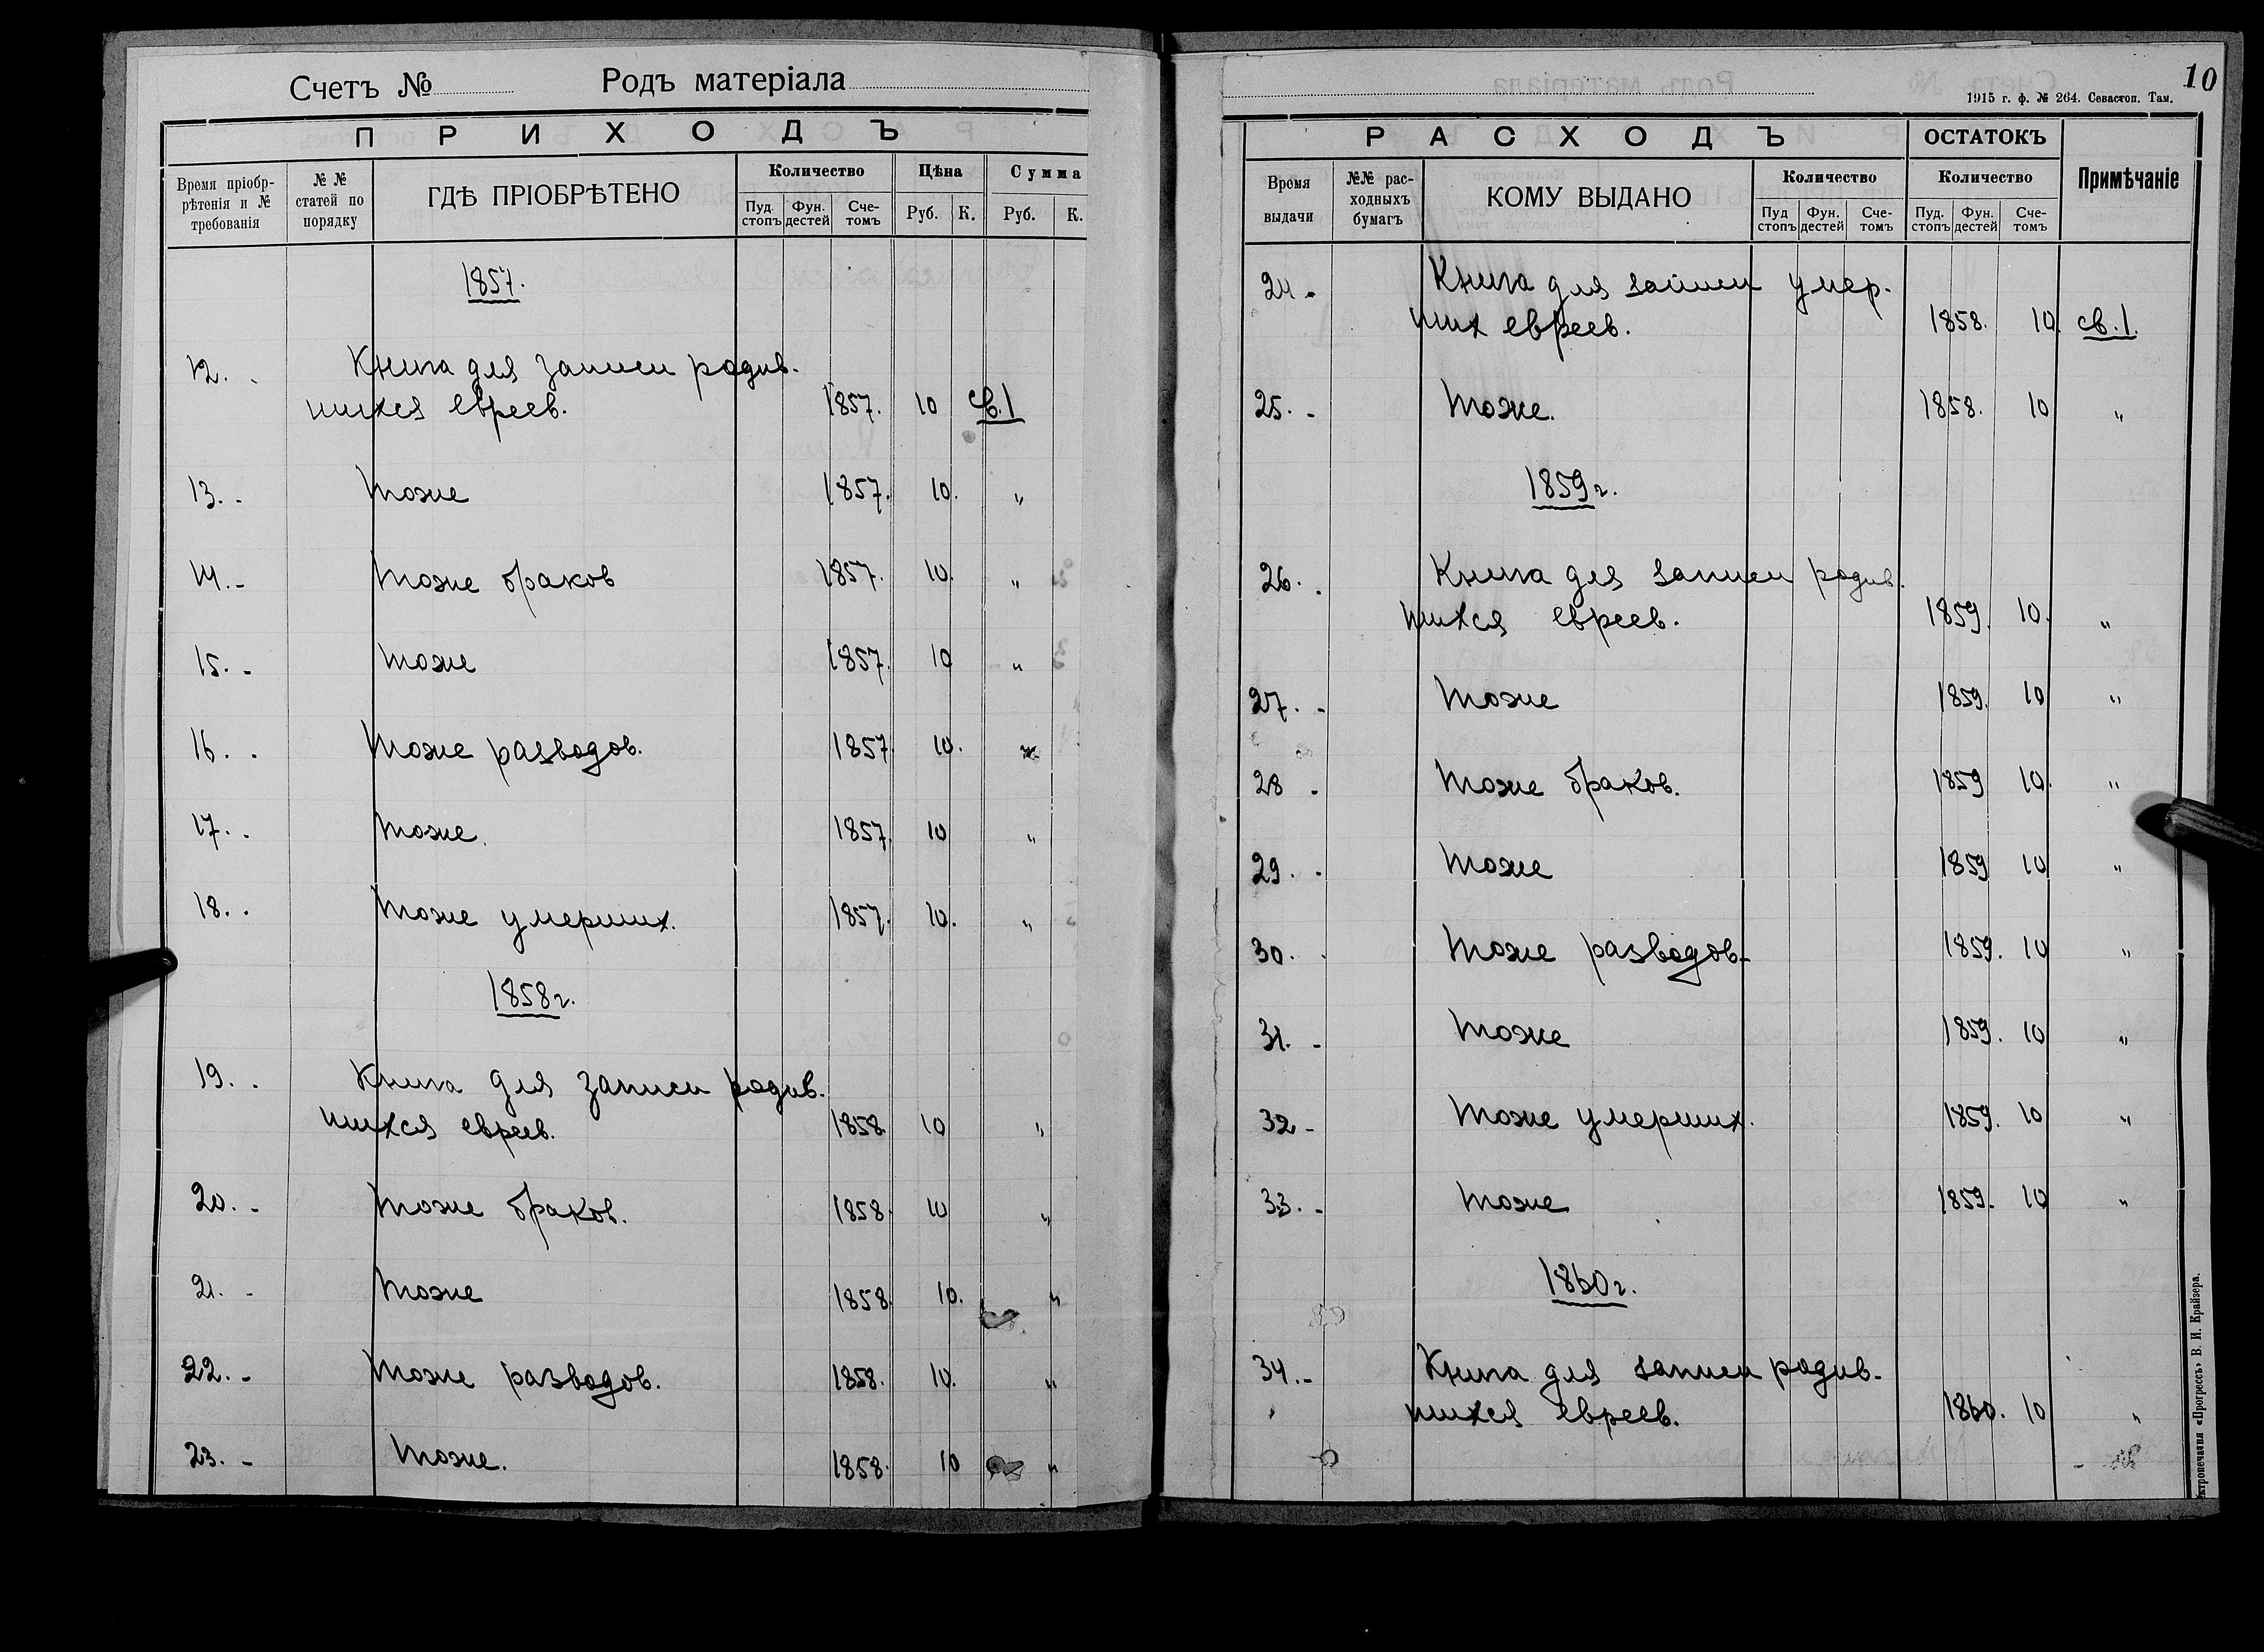 Счетъ № Родъ матеріала
П Р И Х О Д Ъ
Время пріобр-
рѣтенія и №
требованія
№ №
статей по
порядку
ГДѢ ПРІОБРѢТЕНО
Количество
Пуд. стопъ
Фун. дестей
Сче- томъ
Цѣна
Руб. К.
Сумма
Руб. К.
1857.
12. Книга для записи родив-
шихся евреев. 1857. 10 св. 1
13. - тоже 1857. 10. "
14. - тоже браков 1857. 10. "
15. - тоже 1857. 10 "
16. . тоже разводов. 1857 10. "
17. . тоже. 1857. 10 "
18. . тоже умерших. 1857. 10. "
1858 г.
19. . Книга для записи родив-
шихся евреев. 1858. 10 "
20. - тоже браков. 1858 10 "
21. - тоже 1858. 10. "
22. - тоже разводов. 1858. 10. "
23. - тоже. 1858. 10 "
10
1915 г. ф. № 264. Севастоп. Там.
Р А С Х О Д Ъ
ОСТАТОКЪ
Примѣчаніе
Время
выдачи
№№ рас-
ходныхъ
бумагъ
КОМУ ВЫДАНО
Количество
Пуд стопъ
Фун. дестей
Сче- томъ
Количество
Пуд. стопъ
Фун. дестей
Сче- томъ
24 - Книга для записи умер-
ших евреев. 1858. 10. св. 1.
25. - тоже. 1858. 10 "
1859 г.
26. . Книга для записи родив-
шихся евреев. 1859. 10. "
27. - тоже 1859. 10 "
28 - тоже браков. 1859 10. "
29. - тоже 1859 10 "
30. . тоже разводов. 1859. 10 "
31. - тоже 1859. 10 "
32 - тоже умерших. 1859. 10 "
33. - тоже 1859. 10 "
1860 г.
34. - Книга для записи родив-
шихся евреев. 1860. 10 "
«Прогрессъ» В. И. Крайзера.